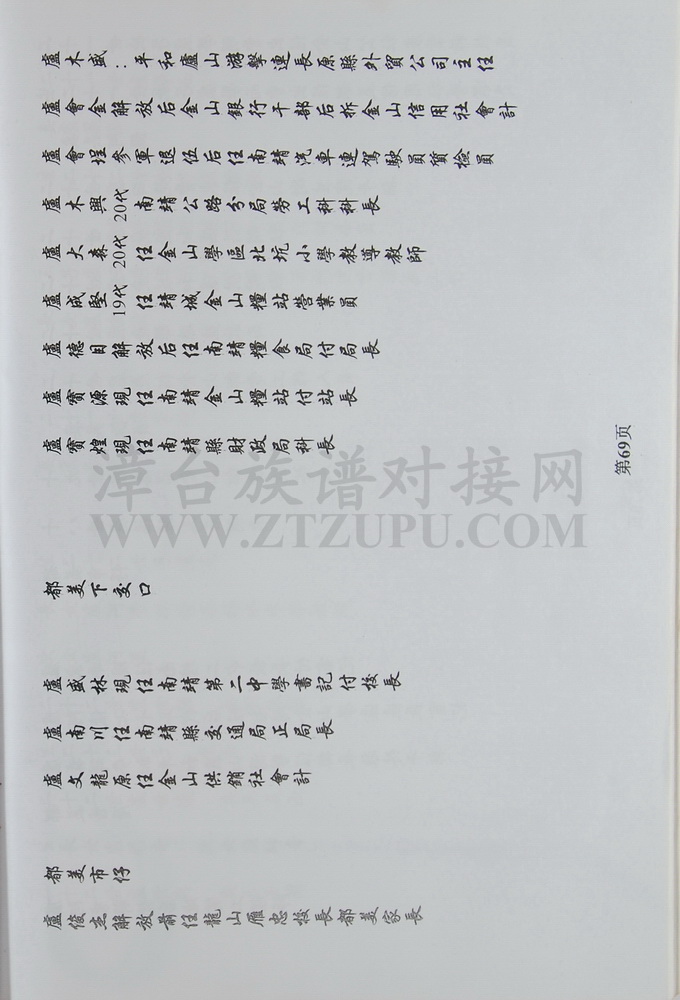 盧木盛：平和盧山游擊連長原縣外貿公司主任
盧會金解放后金山銀行干部后拆金山信用社會計
盧會埕參軍退伍后任南靖汽車連駕駛員質檢員
盧木興20代南靖公路分局勞工科科長
盧大森20代任金山學區北坑小學教導教師
盧成堅19代任靖城金山糧站營業員
盧德目解放后任南靖糧食局付局長
盧寶源現任南靖金山糧站付站長
盧寶煌現任南靖縣財政局科長
都美下交口
盧盛林現任南靖第二中學書記付校長
盧南川任南靖縣交通局正局長
盧文龍原任金山供銷社會計
都美市仔
盧俊杰解放前任龍山雁忠校長都美家長
第69页
漳台族谱对接网
WWW.ZTZUPU.COM